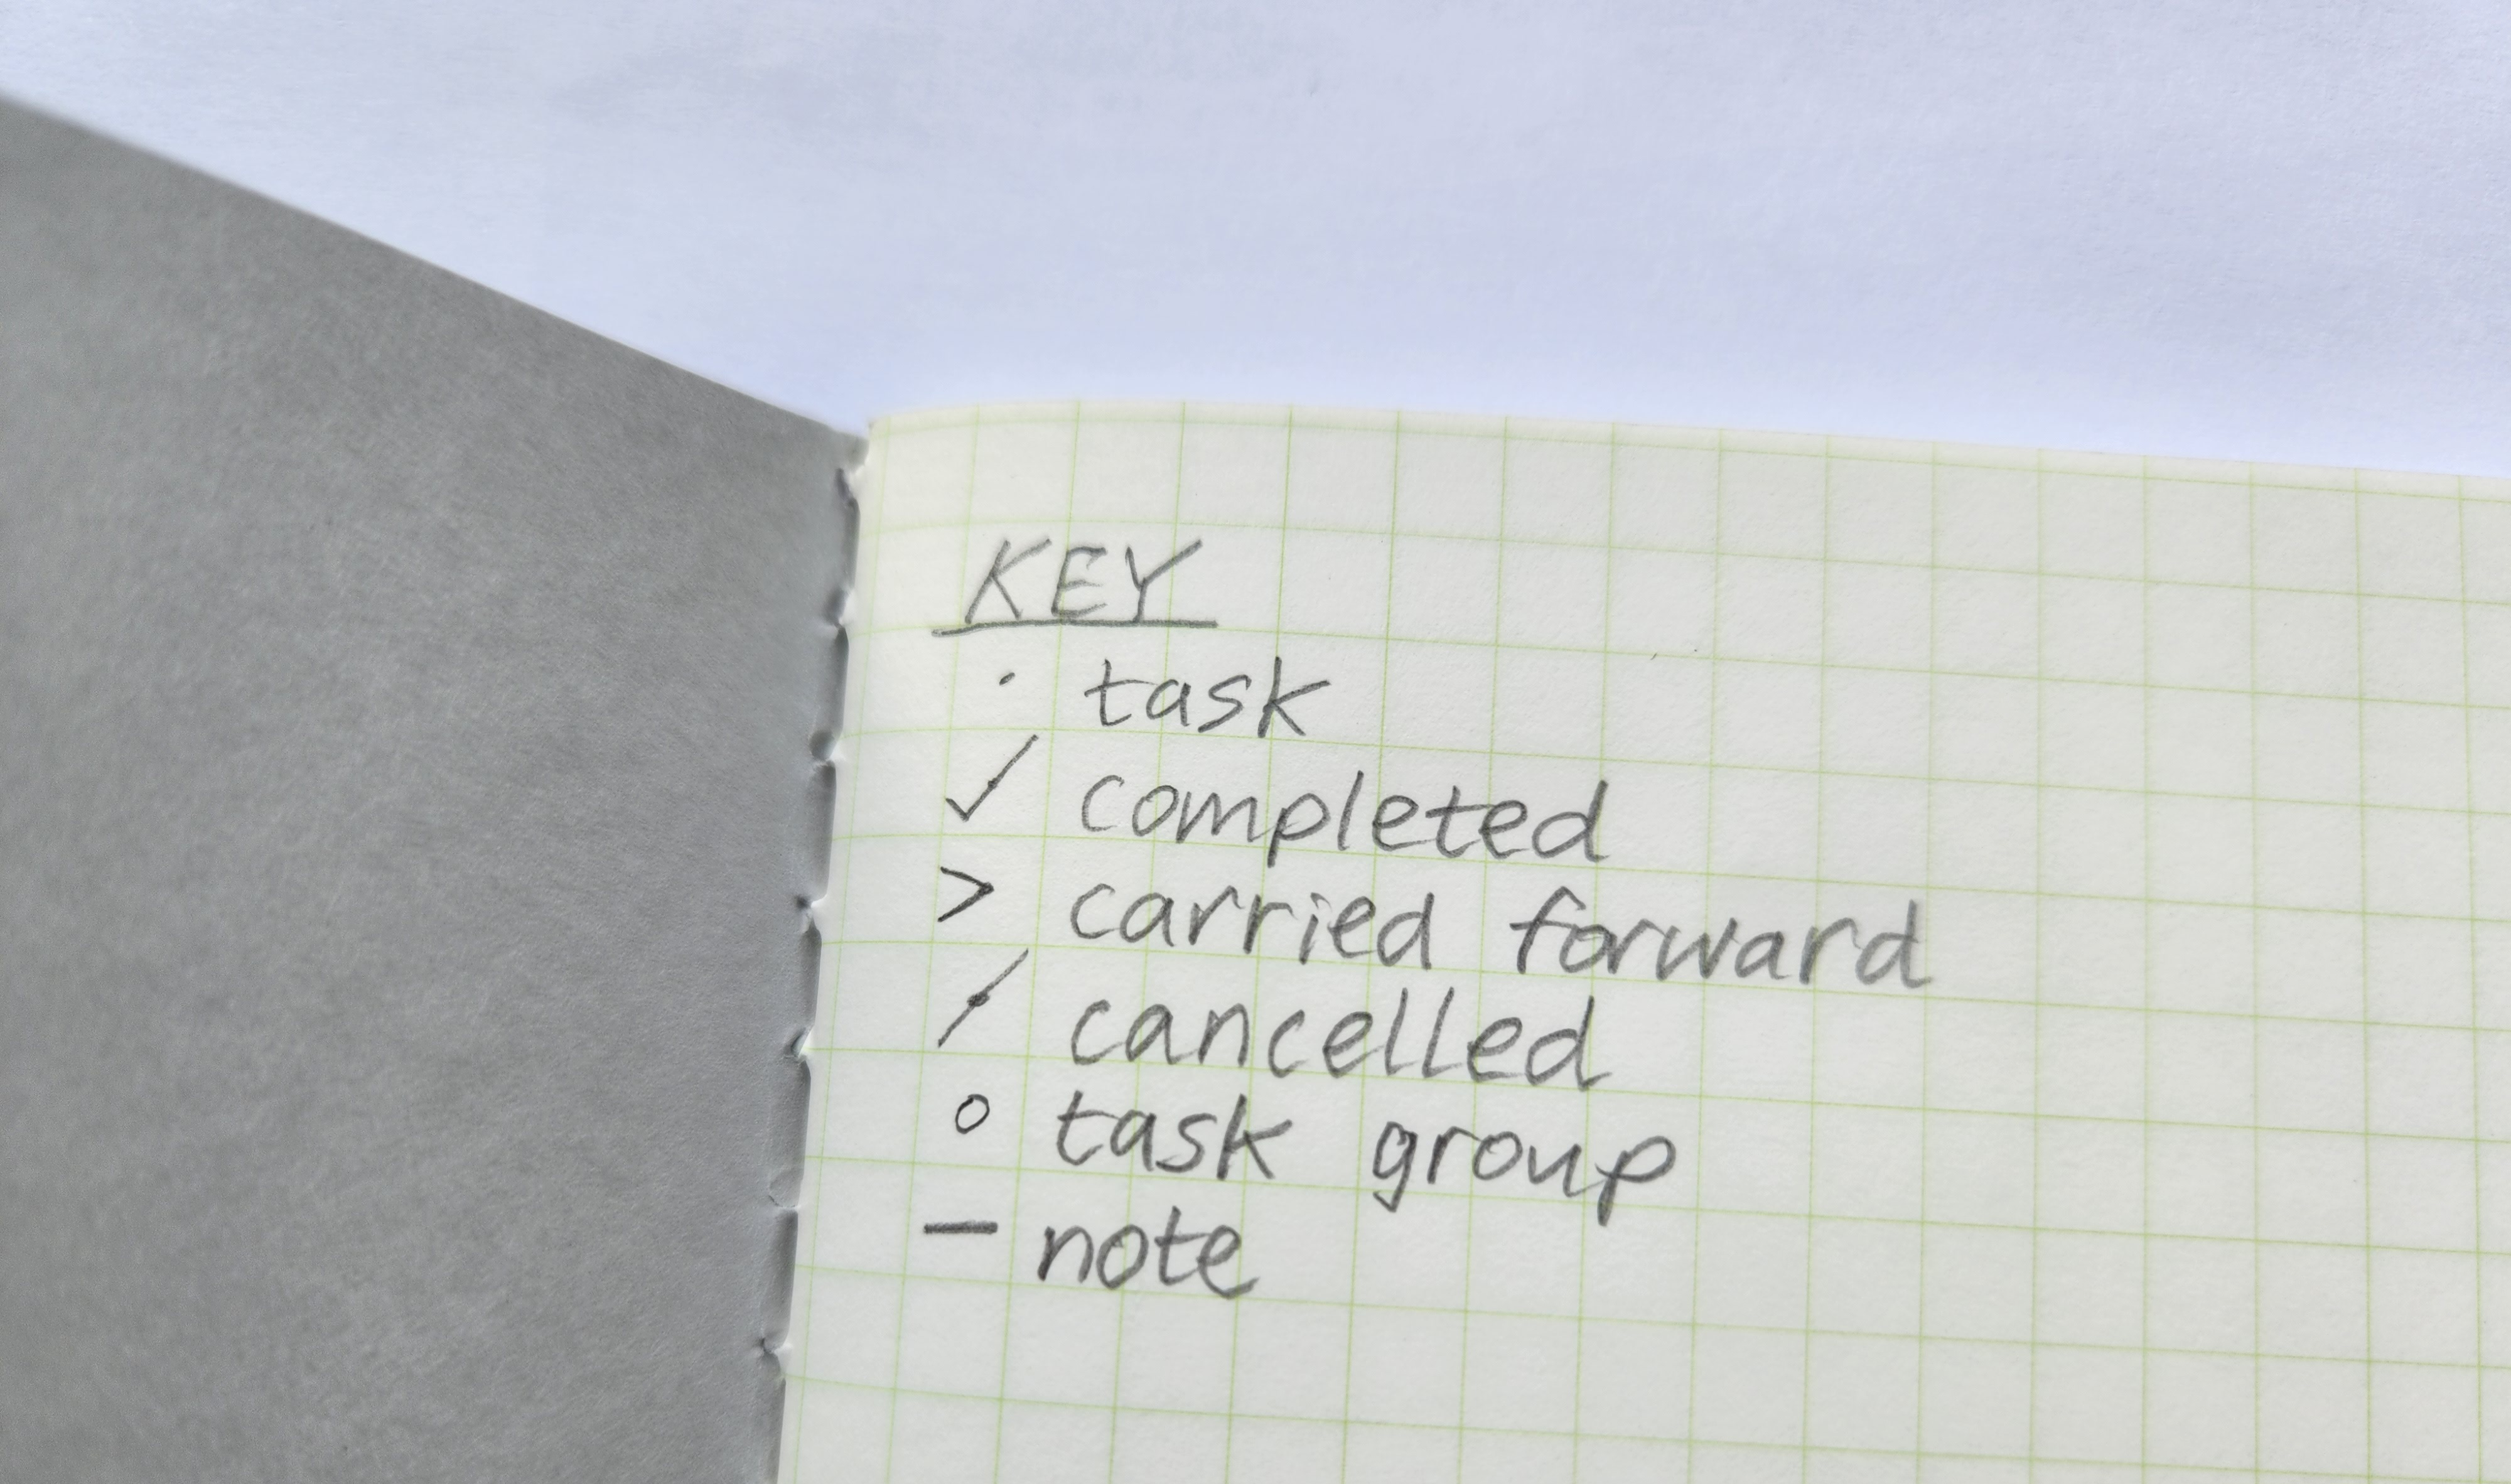 KEY
· task
✓ completed
> carried forward
/ cancelled
o task group
— note